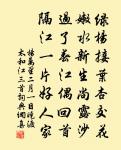 綠楊接葉杏交花
嫩水新生尚露沙
過了春江偶回首
隔江一片好人家
楊萬里二月一日曉渡
太和江三首